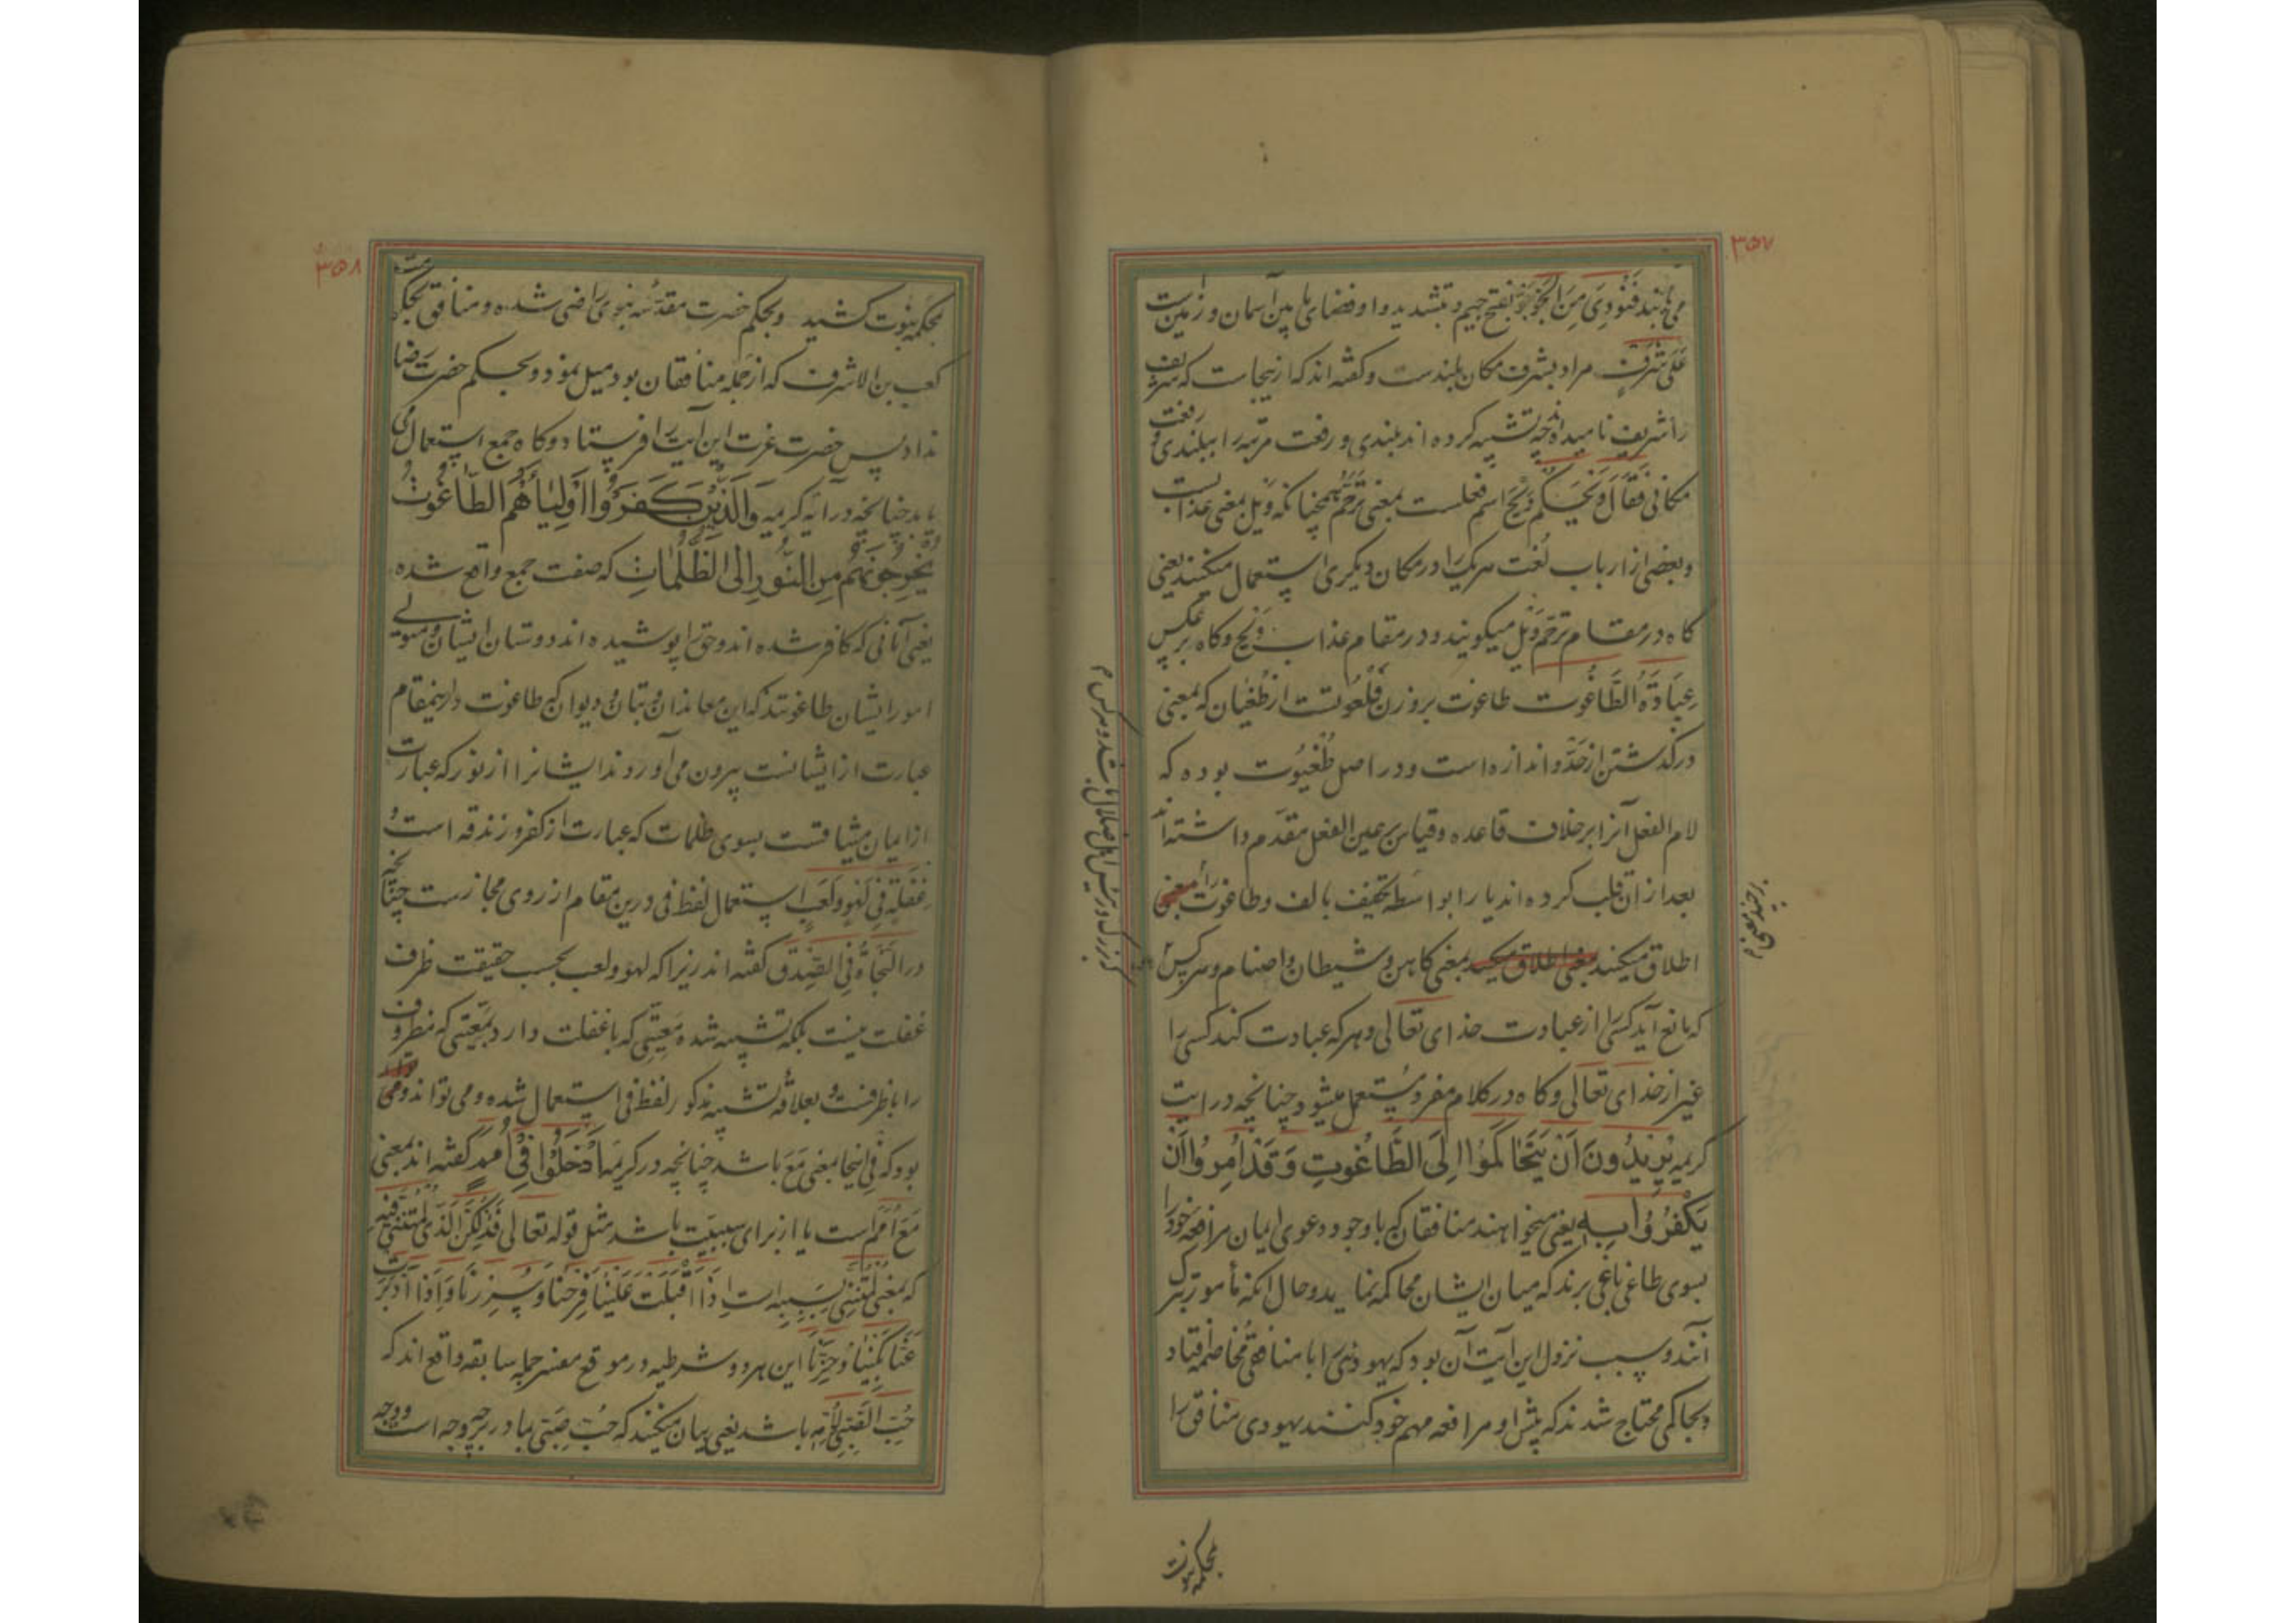 ۳۵۷
می‌نامند فَنُودِیَ مِنَ الجَوِّ جَوّ بفتح جیم و تشدید واو فضای ما بین آسمان و زمین است
عَلی شَرَفٍ مراد بشرف مکان بلندست و گفته اند که ازینجاست که شریف
را شریف نامیده اند چه تشبیه کرده اند بلندی و رفعت مرتبه را ببلندی و رفعت
مکانی فَقَالَ وَیْحَکُم وَیْحَ اسم فعلست بمعنی تَرَحُّم همچنانکه وَیْل بمعنی عذابست
و بعضی از ارباب لُغت هر یک را در مکان دیگری استعمال میکنند یعنی
کاه در مقام ترحّم ویل میکویند و در مقام عذاب ویح و کاه بر عکس
عِبَادَةُ الطَّاغُوت طاغوت بر وزن فَلَعُوتست از طُغیان که بمعنی
درکذشتن از حدّ و اندازه است و در اصل طُغْیُوت بوده که
لام الفعل آنرا بر خلاف قاعده و قیاس بر عین الفعل مقدم داشته اند
بعد از آن قلب کرده اند یا را بواسطه تخفیف بالف و طاغوت را بمعنی
اطلاق میکنند بمعنی اطلاق میکنند بمعنی کاهن و شیطان و اصنام و هر کس
که مانع آید کسی را از عبادت خدای تعالی و هر که عبادت کند کسی را
غیر از خدای تعالی و کاه در کلام مفرد مُستعمل میشود چنانچه در ایت
کریمه یُرِیدُونَ اَنْ یَتَحَاکَمُوا اِلَی الطَّاغُوتِ وَقَدْ اُمِرُوا اَنْ
یَکْفُرُوا بِهِ یعنی میخواهند منافقان که با وجود دعوی ایمان مرافعه خود را
بسوی طاغی باغی برند که میان ایشان محاکمه نماید و حال انکه مأمور بترک
آنند و سبب نزول این آیت آن بود که یهودی را با منافقی مخاصمه افتاد
و بحاکمی محتاج شدند که پیش او مرافعه مهم خود کنند یهودی منافق را
بزرک و رئیس اهل ضلال باشد و هر کس م
بر چند معنی م
بمحکمه نبوت
۳۵۸
بمحکمه نبوت کشید و بحکم حضرت مقدسه نبوی راضی شده و منافق بحکم
کعب بن الاشرف که از جمله منافقان بود میل نمود و بحکم حضرت رضا
نداد پس حضرت عزت این آیت را فرستاد و کاه جمع استعمال می
یابد چنانچه در آیه کریمه وَالَّذِیْنَ کَفَرُوْا اَوْلِیَاۤؤُهُمُ الطَّاغُوْتُ
یُخْرِجُوْنَهُمْ مِنَ النُّوْرِ اِلَی الظُّلُمَاتِ که صفت جمع واقع شده
یعنی آنانی که کافر شده اند و حق را پوشیده اند دوستان ایشان و متولی
امور ایشان طاغوتند که این معاندان و بتان و دیوان که طاغوت در اینمقام
عبارت از ایشانست بیرون می آورند ایشانرا از نور که عبارت
از ایمان میثاقست بسوی ظلمات که عبارت از کفر و زندقه است و
غَفْلَتِهِ فِی لَهْوٍ وَلَعِبٍ استعمال لفظ فی درین مقام از روی مجازست چنانچه
در النَّجَاةُ فِی الصِّدْقِ کفته اند زیرا که لهو و لعب بحسب حقیقت ظرف
غفلت نیست بلکه تشبیه شده معیتی که با غفلت دارد بمعیتی که مظروف
را با ظرفست و بعلاقه تشبیه مذکور لفظ فی استعمال شده و می تواند
بود که فی اینجا بمعنی مَعَ باشد چنانچه در کریمه اُدْخُلُوْا فِیْ اُمَمٍ کفته اند بمعنی
مَعَ اُمَمٍ است یا از برای سببیت باشد مثل قوله تعالی فَذٰلِکُنَّ الَّذِی لُمْتُنَّنِی فِیْهِ
که بمعنی لُمْتُنَّنِی بِسَبَبِهِ است اِذَا اَقْبَلَتْ عَلَیْنَا فَرِحْنَا وَ سُرِرْنَا وَ اِذَا اَدْبَرَتْ
عَنَّا بَکَیْنَا وَ حَزِنَّا این هر دو شرطیه در موقع مفسر جمله سابقه واقع اند که
حُبِّ الصَّبِیِّ لِاُمِّهِ باشد یعنی بیان میکنند که حُبّ صَبِیّ مادر بر چه وجه است